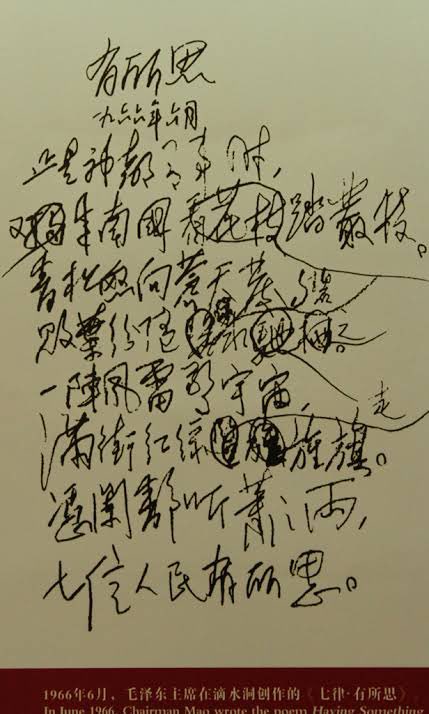 有所思
一九六六年六月
正是神都有事时，
又来南国看花枝踏丛枝。
青松怒向苍天发，
败叶纷随碧水驰
一阵风雷惊宇宙，
满街红绿走旌旗。
凭阑静听萧之雨，
七亿人民有所思。
1966年6月，毛泽东主席在滴水洞创作的《七律·有所思》
In June 1966, Chairman Mao wrote the poem Having Something